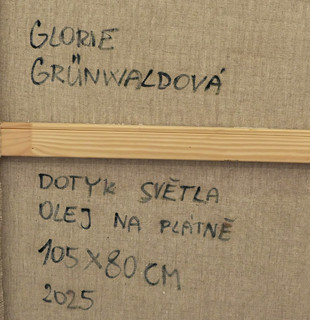 GLORIE
GRÜNWALDOVÁ
DOTYK SVĚTLA
OLEJ NA PLÁTNĚ
105X80 CM
2025